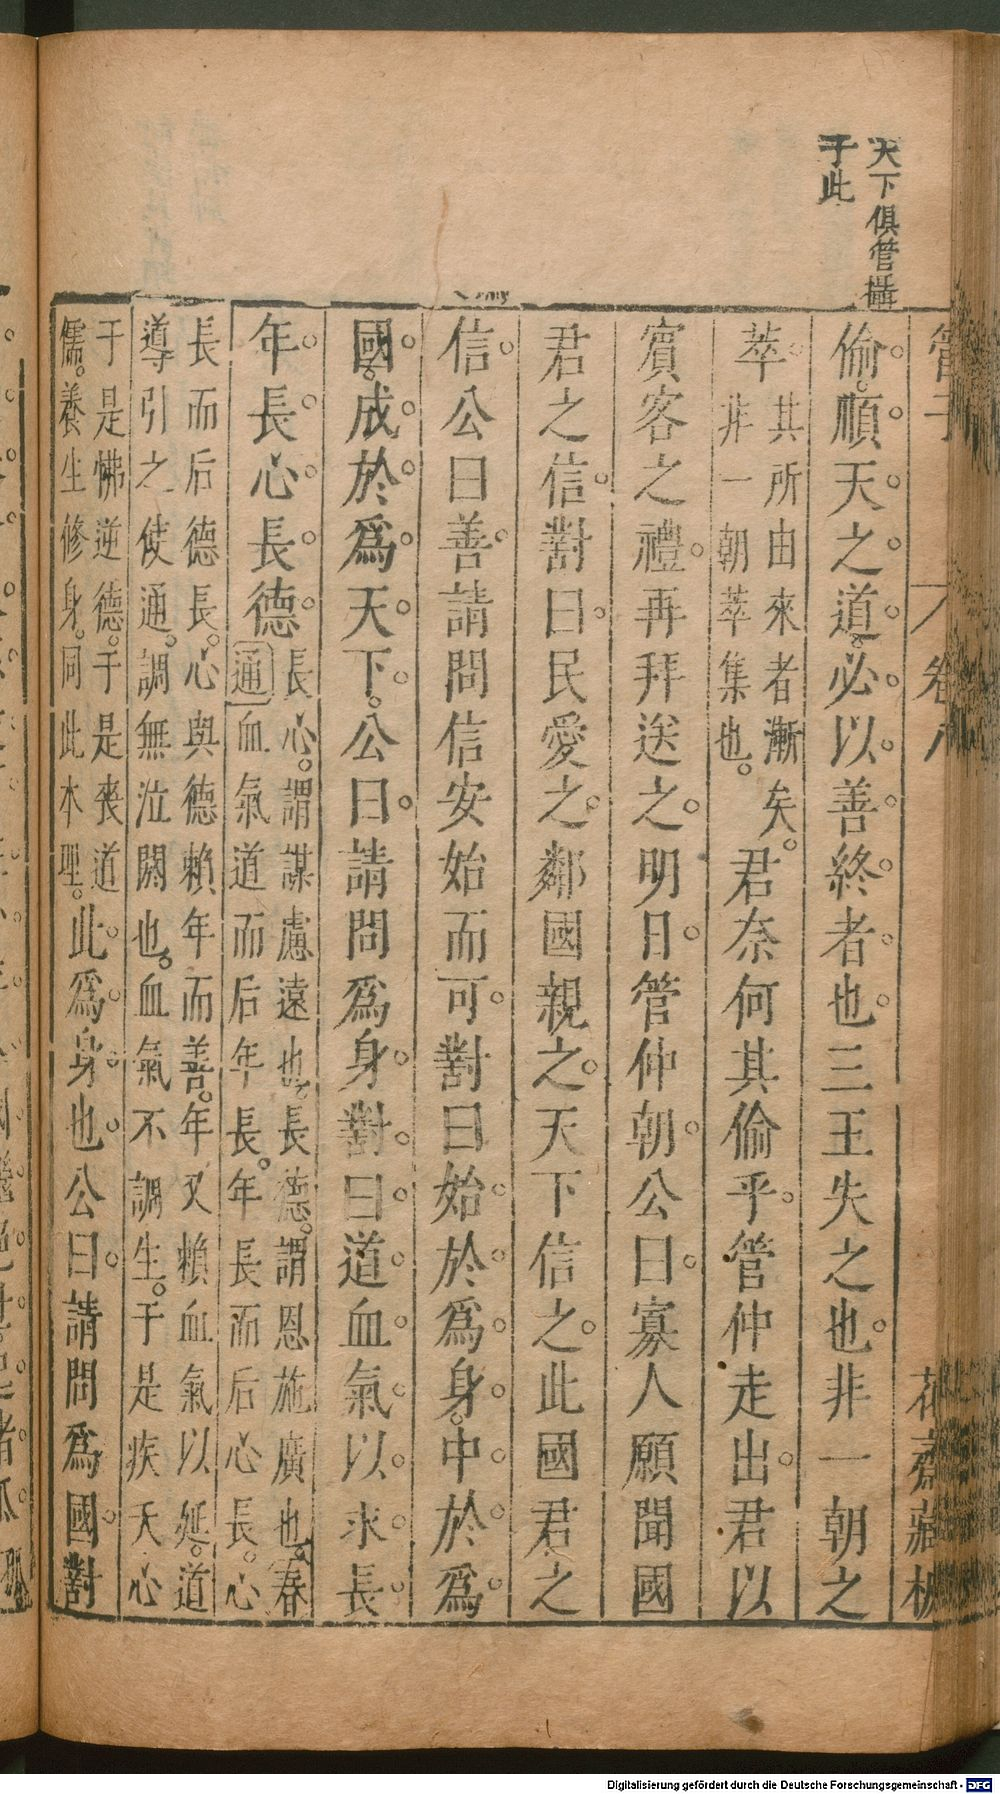 天下俱管攝
于此
管子
卷八
花齋藏板
偷順天之道必以善終者也三王失之也非一朝之
萃其所由來者漸矣非一朝萃集也君奈何其偷乎管仲走出君以
賓客之禮再拜送之明日管仲朝公曰寡人願聞國
君之信對曰民愛之鄰國親之天下信之此國君之
信公曰善請問信安始而可對曰始於為身中於為
國成於為天下公曰請問為身對曰道血氣以求長
年長心長德長心謂謀慮遠也長德謂恩施廣也春通血氣道而后年長年長而后心長心
長而后德長心與德賴年而善年又賴血氣以延道
導引之使通調無泣闕也血氣不調生于是疾夭心
于是怫逆德于是喪道
儒養生修身同此本理此為身也公曰請問為國對
Digitalisierung gefördert durch die Deutsche Forschungsgemeinschaft - DFG